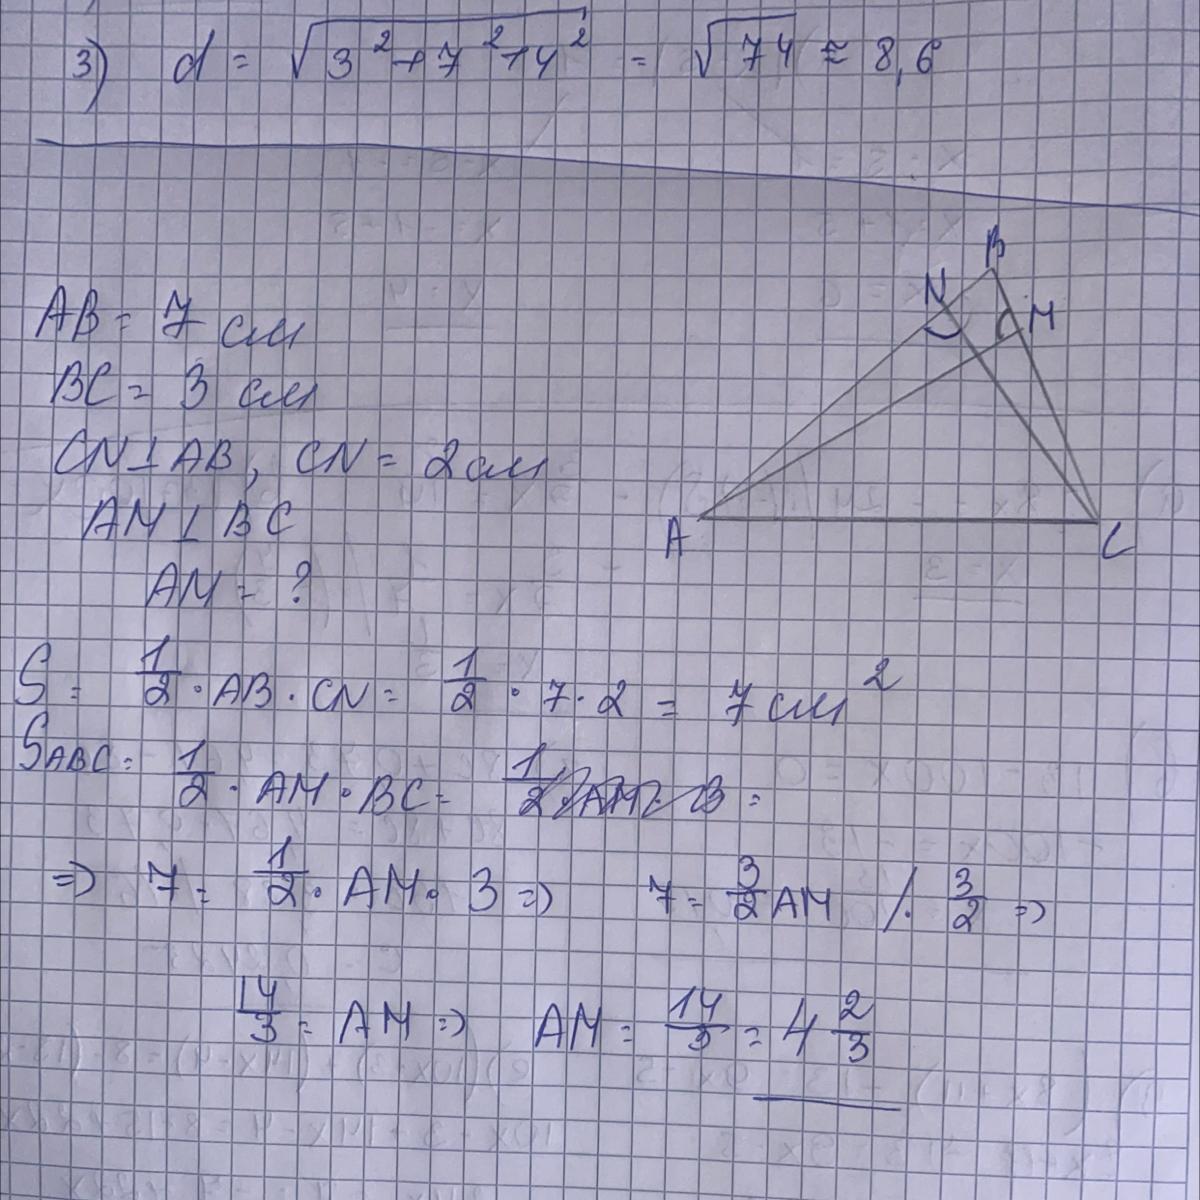 3) d = √3²+7²+4² = √74 ≈ 8,6
B
N
M
A
C
AB = 7 см
BC = 3 см
CN⊥AB, CN = 2см
AM⊥BC
AM = ?
S = 1/2 · AB · CN = 1/2 · 7 · 2 = 7 см²
SABC = 1/2 · AM · BC = 1/2 · AM · 3 =
=> 7 = 1/2 · AM · 3 => 7 = 3/2 AM /· 3/2 =>
14/3 = AM => AM = 14/3 = 4 2/3